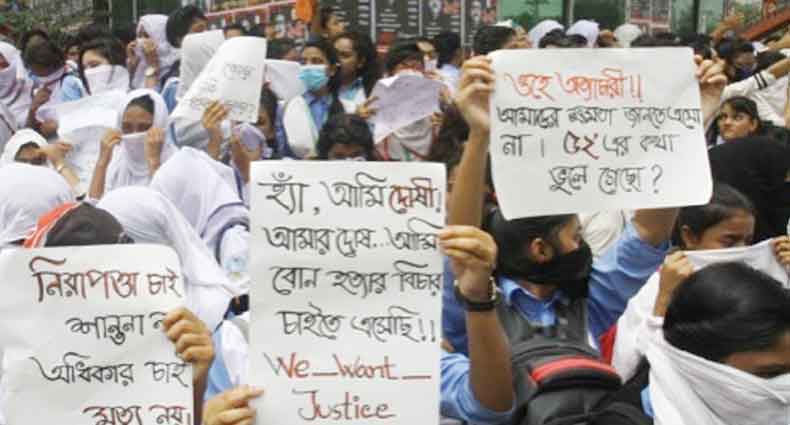 ওহে অত্যাচারী!!
আমাদের ক্ষমতা জানতে এসো
না। ৫২'এর কথা
ভুলে গেছো?
হ্যাঁ, আমি দোষী!
আমার দোষ...আমি
বোন হত্যার বিচার
চাইতে এসেছি!!
We_Want_
Justice
নিরাপত্তা চাই
শান্তনা ন
অধিকার চাই
মৃত্যু নয়।